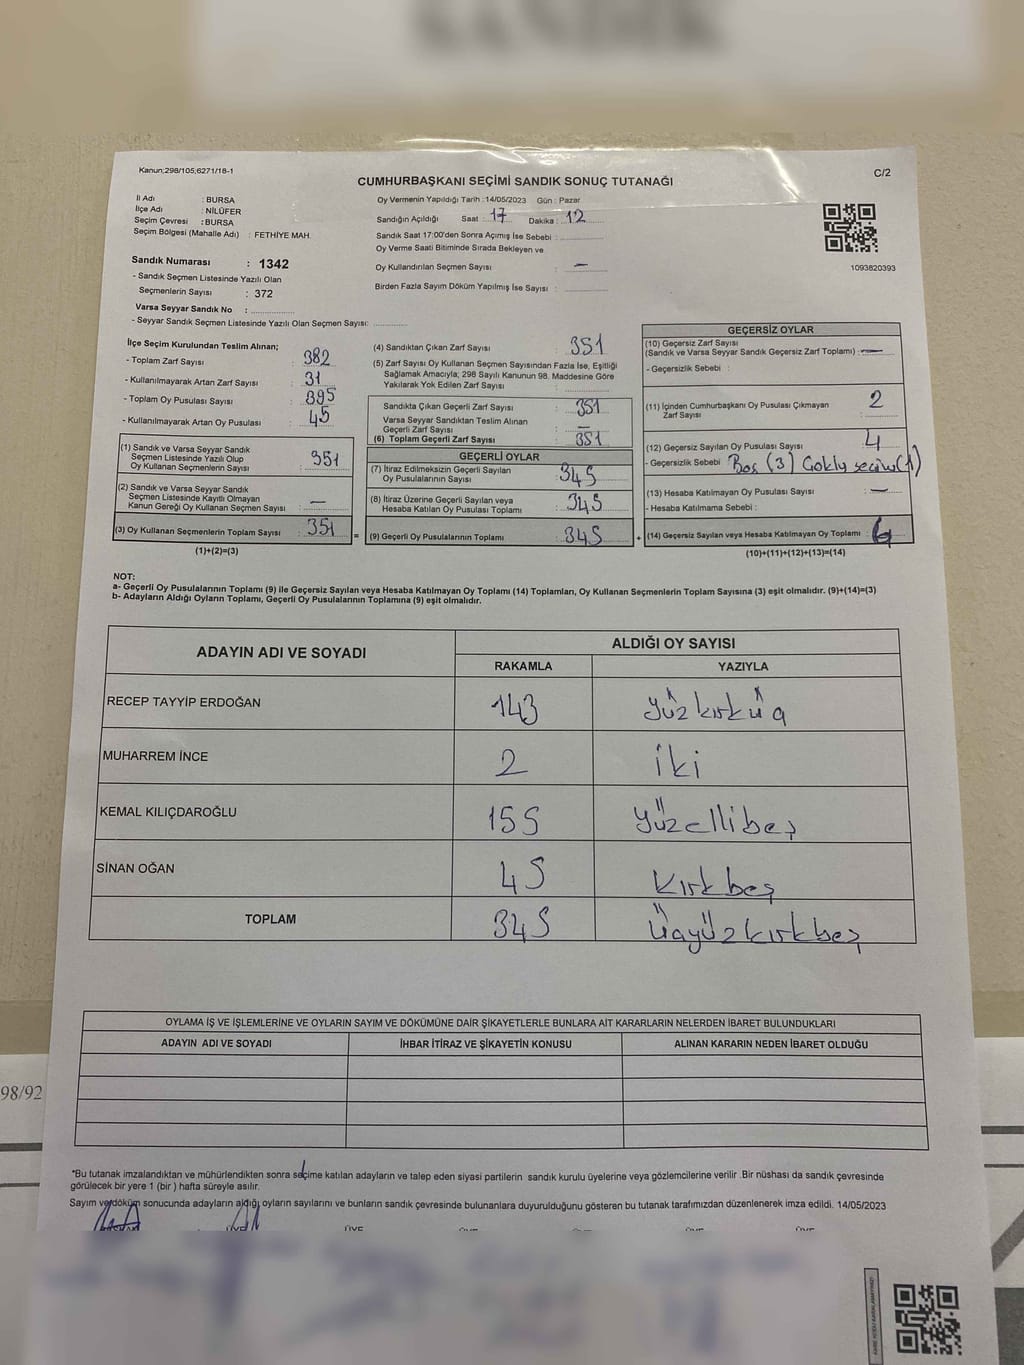 SANDIK
Kanun;298/105;6271/18-1
C/2
CUMHURBAŞKANI SEÇİMİ SANDIK SONUÇ TUTANAĞI
İl Adı : BURSA
İlçe Adı : NİLÜFER
Seçim Çevresi : BURSA
Seçim Bölgesi (Mahalle Adı) : FETHİYE MAH.
Oy Vermenin Yapıldığı Tarih :14/05/2023 Gün : Pazar
Sandığın Açıldığı Saat : 17 Dakika : 12
Sandık Saat 17:00'den Sonra Açımış İse Sebebi :
Oy Verme Saati Bitiminde Sırada Bekleyen ve
Oy Kullandırılan Seçmen Sayısı : —
Birden Fazla Sayım Döküm Yapılmış İse Sayısı :
1093820393
Sandık Numarası : 1342
- Sandık Seçmen Listesinde Yazılı Olan
Seçmenlerin Sayısı : 372
Varsa Seyyar Sandık No :
- Seyyar Sandık Seçmen Listesinde Yazılı Olan Seçmen Sayısı:
İlçe Seçim Kurulundan Teslim Alınan;
- Toplam Zarf Sayısı : 382
- Kullanılmayarak Artan Zarf Sayısı : 31
- Toplam Oy Pusulası Sayısı : 395
- Kullanılmayarak Artan Oy Pusulası : 45
(1) Sandık ve Varsa Seyyar Sandık
Seçmen Listesinde Yazılı Olup
Oy Kullanan Seçmenlerin Sayısı : 351
(2) Sandık ve Varsa Seyyar Sandık
Seçmen Listesinde Kayıtlı Olmayan
Kanun Gereği Oy Kullanan Seçmen Sayısı : —
(3) Oy Kullanan Seçmenlerin Toplam Sayısı : 351
(1)+(2)=(3)
(4) Sandıktan Çıkan Zarf Sayısı : 351
(5) Zarf Sayısı Oy Kullanan Seçmen Sayısından Fazla İse, Eşitliği
Sağlamak Amacıyla; 298 Sayılı Kanunun 98. Maddesine Göre
Yakılarak Yok Edilen Zarf Sayısı :
Sandıkta Çıkan Geçerli Zarf Sayısı : 351
Varsa Seyyar Sandıktan Teslim Alınan
Geçerli Zarf Sayısı : —
(6) Toplam Geçerli Zarf Sayısı : 351
GEÇERLİ OYLAR
(7) İtiraz Edilmeksizin Geçerli Sayılan
Oy Pusulalarının Sayısı : 345
(8) İtiraz Üzerine Geçerli Sayılan veya
Hesaba Katılan Oy Pusulası Toplamı : 345
= (9) Geçerli Oy Pusulalarının Toplamı : 345 +
GEÇERSİZ OYLAR
(10) Geçersiz Zarf Sayısı
(Sandık ve Varsa Seyyar Sandık Geçersiz Zarf Toplamı) : —
- Geçersizlik Sebebi :
(11) İçinden Cumhurbaşkanı Oy Pusulası Çıkmayan
Zarf Sayısı : 2
(12) Geçersiz Sayılan Oy Pusulası Sayısı : 4
- Geçersizlik Sebebi Boş (3) Çoklu seçim (1)
(13) Hesaba Katılmayan Oy Pusulası Sayısı : —
- Hesaba Katılmama Sebebi :
(14) Geçersiz Sayılan veya Hesaba Katılmayan Oy Toplamı : 6
(10)+(11)+(12)+(13)=(14)
NOT:
a- Geçerli Oy Pusulalarının Toplamı (9) ile Geçersiz Sayılan veya Hesaba Katılmayan Oy Toplamı (14) Toplamları, Oy Kullanan Seçmenlerin Toplam Sayısına (3) eşit olmalıdır. (9)+(14)=(3)
b- Adayların Aldığı Oyların Toplamı, Geçerli Oy Pusulalarının Toplamına (9) eşit olmalıdır.
ADAYIN ADI VE SOYADI
ALDIĞI OY SAYISI
RAKAMLA YAZIYLA
RECEP TAYYİP ERDOĞAN 143 yüzkırküç
MUHARREM İNCE 2 iki
KEMAL KILIÇDAROĞLU 155 yüzellibeş
SİNAN OĞAN 45 kırkbeş
TOPLAM 345 üçyüzkırkbeş
OYLAMA İŞ VE İŞLEMLERİNE VE OYLARIN SAYIM VE DÖKÜMÜNE DAİR ŞİKAYETLERLE BUNLARA AİT KARARLARIN NELERDEN İBARET BULUNDUKLARI
ADAYIN ADI VE SOYADI İHBAR İTİRAZ VE ŞİKAYETİN KONUSU ALINAN KARARIN NEDEN İBARET OLDUĞU
98/92
*Bu tutanak imzalandıktan ve mühürlendikten sonra seçime katılan adayların ve talep eden siyasi partilerin sandık kurulu üyelerine veya gözlemcilerine verilir .Bir nüshası da sandık çevresinde
görülecek bir yere 1 (bir ) hafta süreyle asılır.
Sayım ve döküm sonucunda adayların aldığı oyların sayılarını ve bunların sandık çevresinde bulunanlara duyurulduğunu gösteren bu tutanak tarafımızdan düzenlenerek imza edildi. 14/05/2023
BAŞKAN ÜYE ÜYE ÜYE ÜYE ÜYE